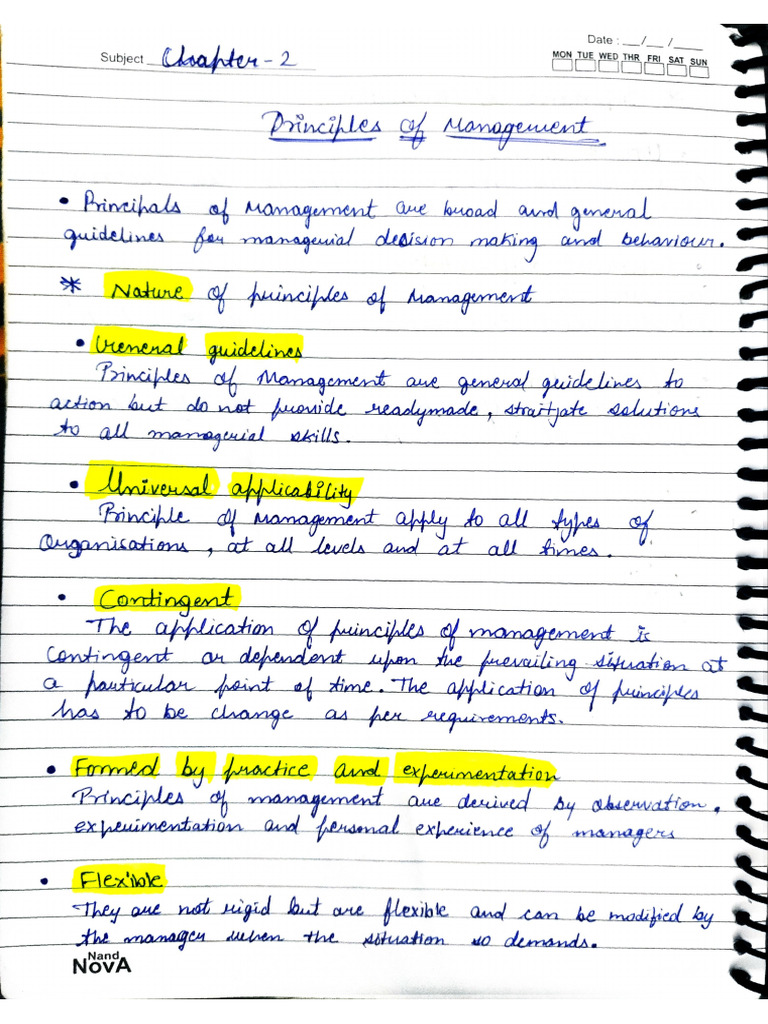 Date : __/__/____
Subject Chapter - 2
MON TUE WED THR FRI SAT SUN
Principles of Management
• Principals of Management are broad and general
guidelines for managerial decision making and behaviour.
* Nature of principles of Management
• General guidelines
Principles of Management are general guidelines to
action but do not provide readymade, straitjate solutions
to all managerial skills.
• Universal applicability
Principle of Management apply to all types of
Organisations, at all levels and at all times.
• Contingent
The application of principles of management is
contingent or dependent upon the prevailing situation at
a particular point of time. The application of principles
has to be change as per requirements.
• Formed by practice and experimentation
Principles of management are derived by observation,
experimentation and personal experience of managers
• Flexible
They are not rigid but are flexible and can be modified by
the manager when the situation so demands.
Nand
NovA